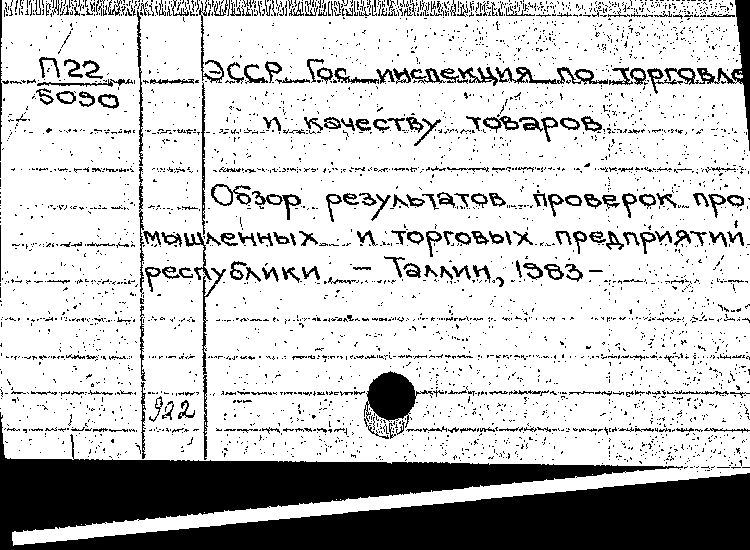 П22
5090
ЭССР Гос. инспекция по торговле
и качеству товаров.
Обзор результатов проверок про
мышленных и торговых предприятий
республики. – Таллин, 1983 –
922